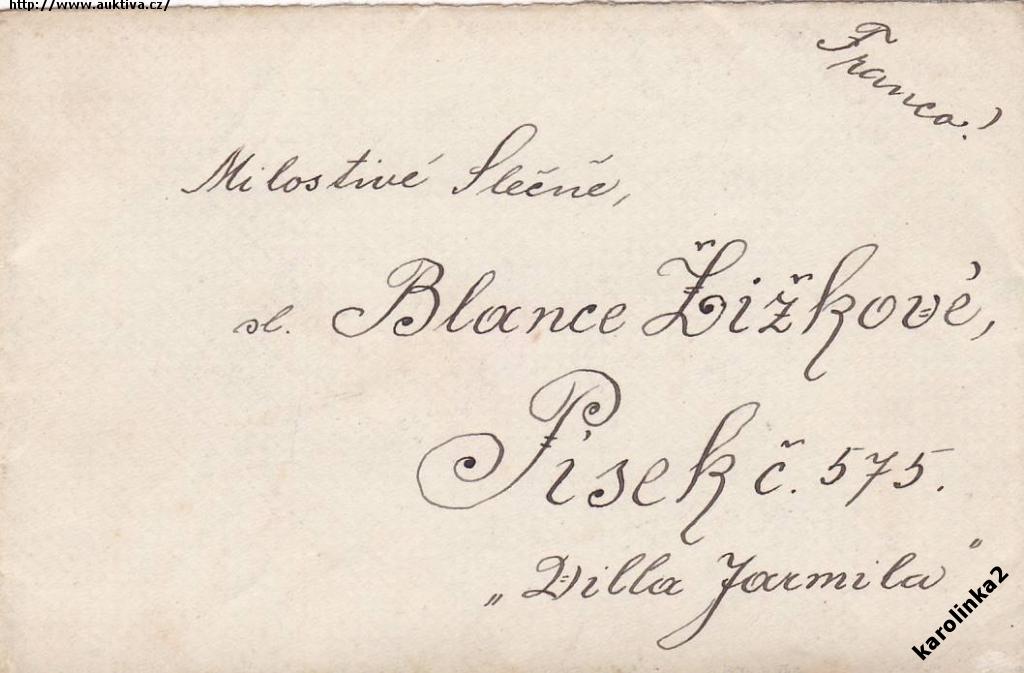 http://www.auktiva.cz/
Franco!
Milostivé Slečně,
sl. Blance Žižkové,
Písek č. 575.
„Villa Jarmila"
karolinka2